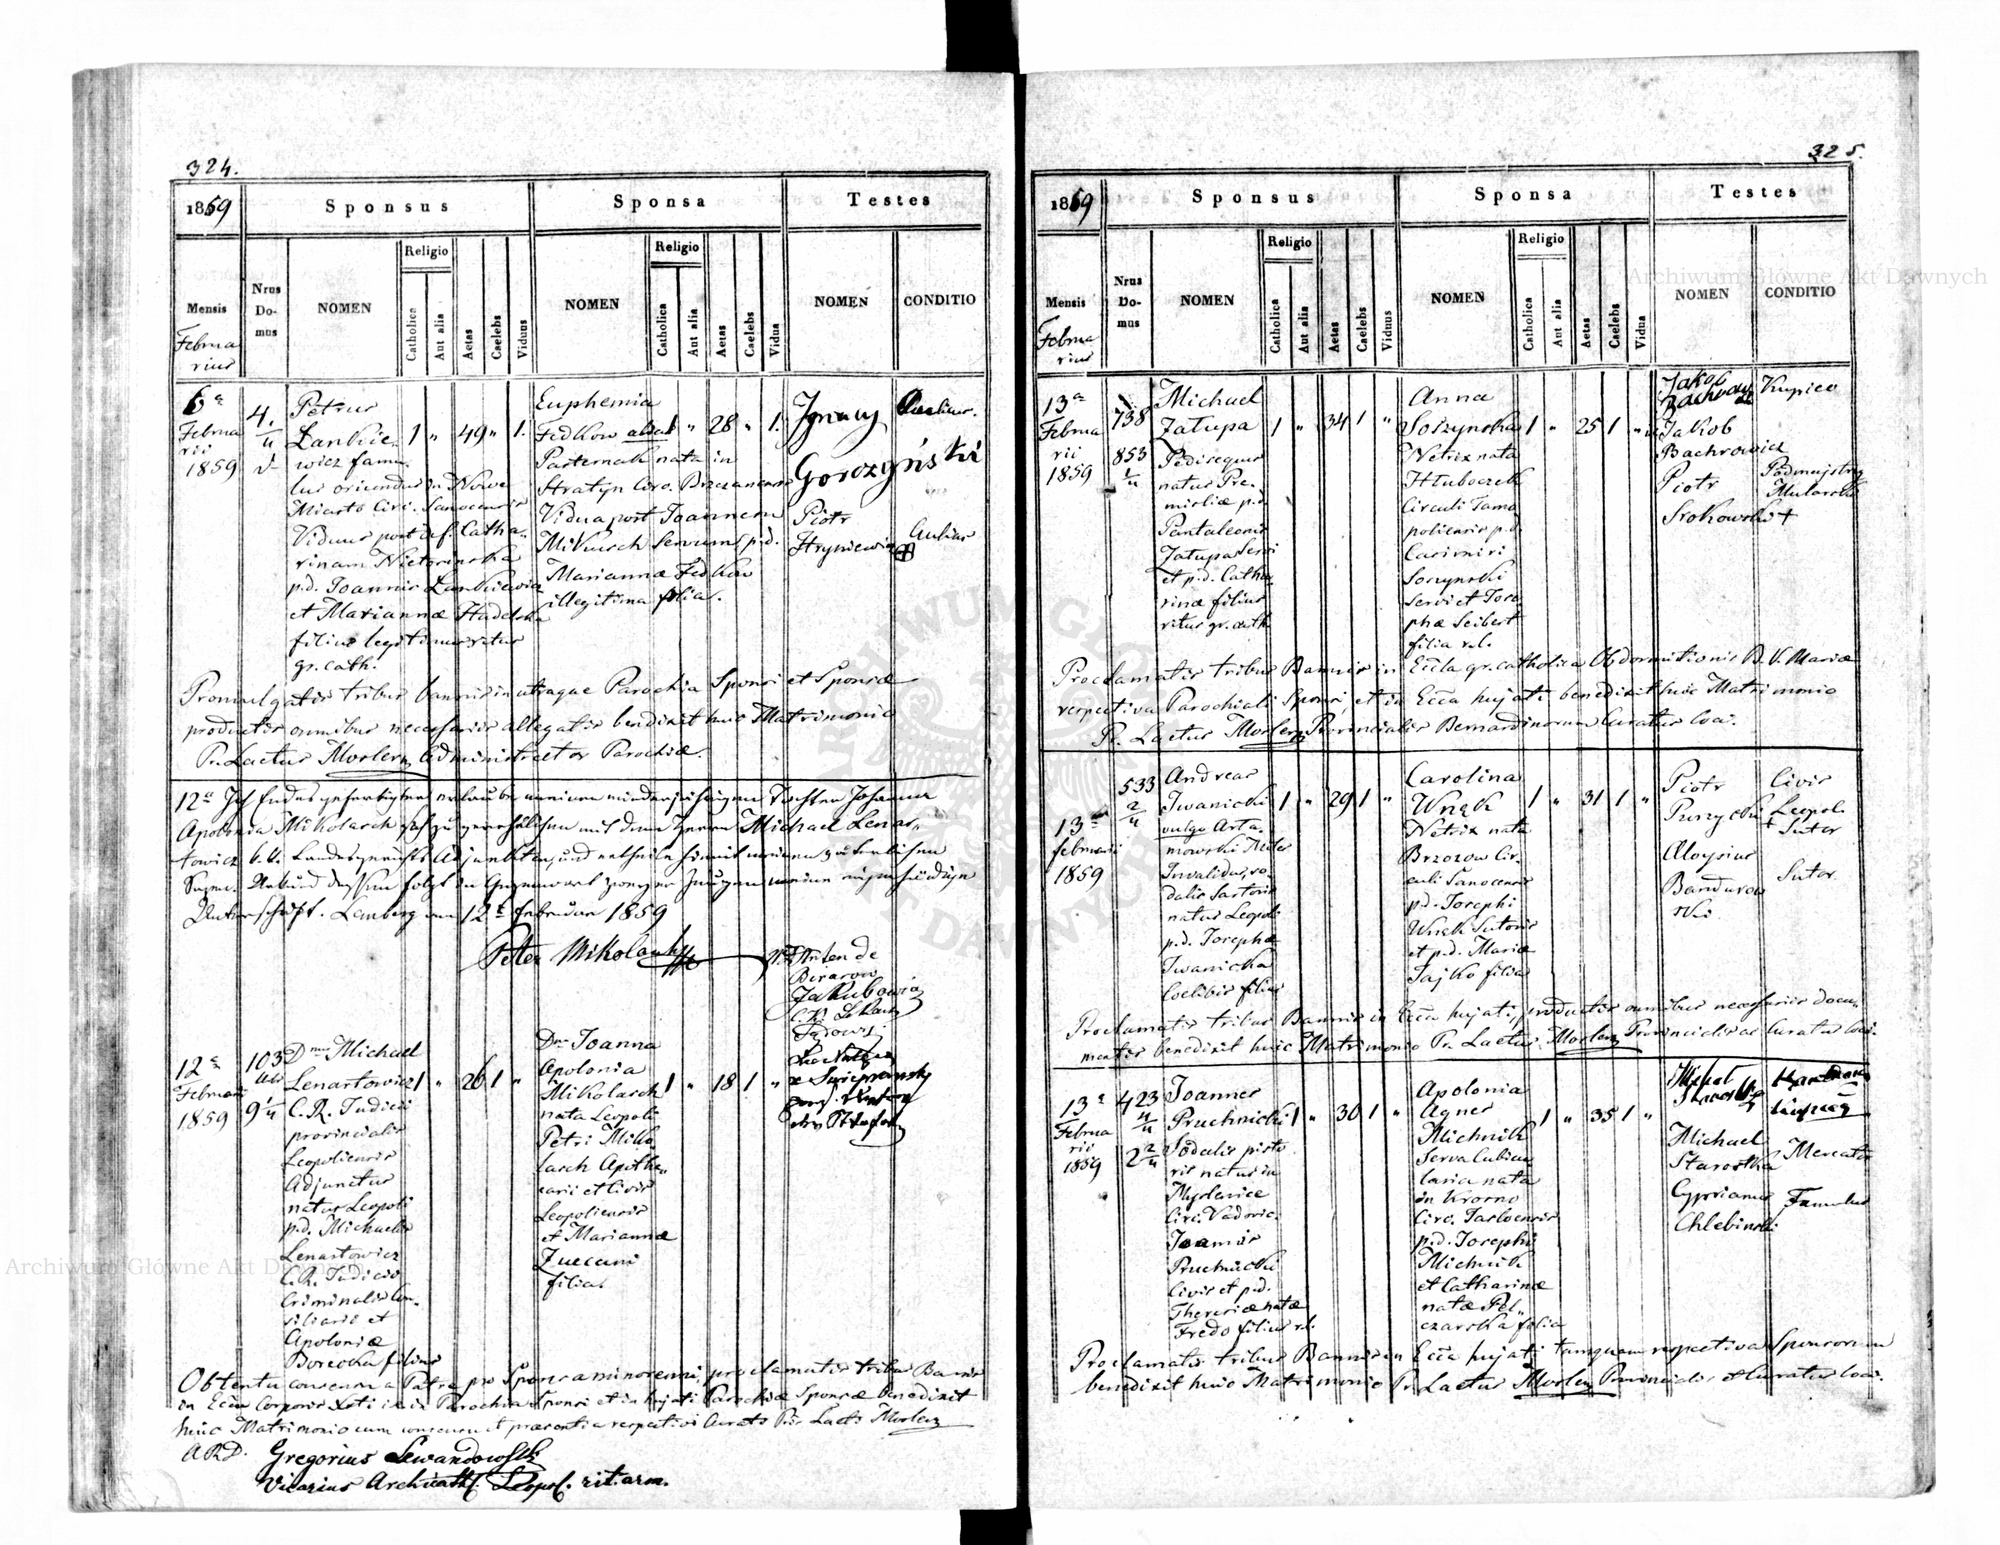 324.
1859
Sponsus
Sponsa
Testes
Mensis
Februa
rius
Nrus
Do-
mus
NOMEN
Religio
Catholica
Aut alia
Aetas
Caelebs
Viduus
NOMEN
Religio
Catholica
Aut alia
Aetas
Caelebs
Vidua
NOMEN
CONDITIO
6a
Februa
rii
1859
4.
Petrus
Łankie-
wicz famu-
lus oriundus in Nowe
Miasto Circ. Sanocensis
Viduus post def. Catha-
rinam
p.d. Joannis Łankiewicz
et Mariannæ
filius legitimus ritus
gr. cath.
1 " 49 " 1.
Euphemia
Fedkow alias
Pasternak nata in
Stratyn Circ. Brzezanensis
Vidua post Joannem
servum, p.d.
Mariannæ Fedkow
illegitima filia.
1 " 28 " 1.
Ignacy
Gorczyński
Piotr
Hryniewicz
Promulgatis tribus bannis in utraque Parochia Sponsi et Sponsæ
productis omnibus necessariis allegatis bendixit huic Matrimonio
Pr. Laetus Morlerz Administrator Parochiæ.
12a Ich Endesgefertigter erlaube meiner minderjährigen Tochter Johanna
Apolonia Mikolasch sich zu verehelichen mit dem Herrn Michael Lenar-
towicz k.k. Landesgerichts Adjunkten, und ertheile hiemit meinen väterlichen
Segen. Urkund dessen folgt in Gegenwart zweyer Zeugen meine eigenhändige
Unterschrift. Lemberg am 12t Februar 1859
Peter Mikolasch
Anton de
Jakubowicz
12a
Februarii
1859
103
9 1/4
Dnus Michael
Lenartowicz
C.R. Judicii
provincialis
Leopoliensis
Adjunctus
natus Leopoli
p.d. Michaelis
Lenartowicz
C.R. Judicio
Criminalis Con-
siliario et
Apoloniæ
filius
1 " 26 1 "
Dna Joanna
Apolonia
Mikolasch
nata Leopoli
Petri Miko-
lasch Apothe-
carii et Civis
Leopoliensis
et Mariannæ
Zuccani
filia.
1 " 18 1 "
Obtentu consensu a Patre pro Sponsa minorenni, proclamatis tribus Bannis
in Eccla Corporis Xsti in Parochia Sponsi et in hujati Parochia Sponsæ benedixit
huic Matrimonio cum consensu et præsentia respectivi Curati Pris Laeti Morlerz
ARD. Gregorius Lewandowski
Vicarius Archicath. Leopol. rit. arm.
325.
1859
Sponsus
Sponsa
Testes
Mensis
Februa
rius
Nrus
Do-
mus
NOMEN
Religio
Catholica
Aut alia
Aetas
Caelebs
Viduus
NOMEN
Religio
Catholica
Aut alia
Aetas
Caelebs
Vidua
NOMEN
CONDITIO
13a
Februa
rii
1859
738
853
Michael
Zatupa
Pedisequus
natus Pre-
misliæ p.d.
Pantaleonis
Zatupa Servi
et p.d. Catha-
rinæ filius
ritus gr. cath.
1 " 34 1 "
Anna
Soszynska
Netrix nata
Hłuboczek
Circuli Tarno
poliensis p.d.
Casimiri
Soszynski
Servi et Jose-
phæ Seibert
filia r.l.
1 " 25 1 "
Jakob
Bachrowicz
Jakob
Bachrowicz
Piotr
Srokowski +
Kupiec
Podmajstrzy
Mularski
Proclamatis tribus Bannis in Eccla gr. catholica Obdormitionis B.V. Mariæ
respectiva Parochiali Sponsi, et in Eccla hujati benedixit huic Matrimonio
Pr. Laetus Morlerz Provincialis Bernardinorum Curatus loci.
13a
februarii
1859
533
2/4
Andreas
Iwanicki
vulgo Arta-
mowski Miles
Invalidus, so-
dalis Sartoris
natus Leopoli
p.d. Josephæ
Iwanicka
Coelibis filius
1 " 29 1 "
Carolina
Wnęk
Netrix nata
Brzozow Cir-
culi Sanocensis
p.d. Josephi
Wnęk Sutoris
et p.d. Mariæ
Fajko filia
1 " 31 1 "
Piotr
Aloysius
Bandurow
ski
Civis
Leopol.
Sutor
Sutor.
Proclamatis tribus Bannis in Eccla hujati, productis omnibus necessariis docu-
mentis benedixit huic Matrimonio Pr. Laetus Morlerz Provincialis ac Curatus loci.
13a
Februa
rii
1859
423
4/4
2 2/4
Joannes
Pruchnicki
Sodalis pisto
ris natus in
Myslenice
Circ. Vadovic.
Joannis
Pruchnicki
Civis et p.d.
Theresiæ natæ
Fredo filius r.l.
1 " 30 1 "
Apolonia
Agnes
Michnik
Serva Cubicu-
laria nata
in Krosno
Circ. Jasloensis
p.d. Josephi
Michnik
et Catharinæ
natæ Pel-
czarska filia
1 " 35 1 "
Michael
Starostka
Cyprianus
Chlebinski
Mercator
Famulus
Proclamatis tribus Bannis in Eccla hujati tamquam respectiva Sponsorum
benedixit huic Matrimonio Pr. Laetus Morlerz Provincialis et Curatus loci.
Archiwum Główne Akt Dawnych
Archiwum Główne Akt Dawnych
ARCHIWUM GŁÓWNE AKT DAWNYCH